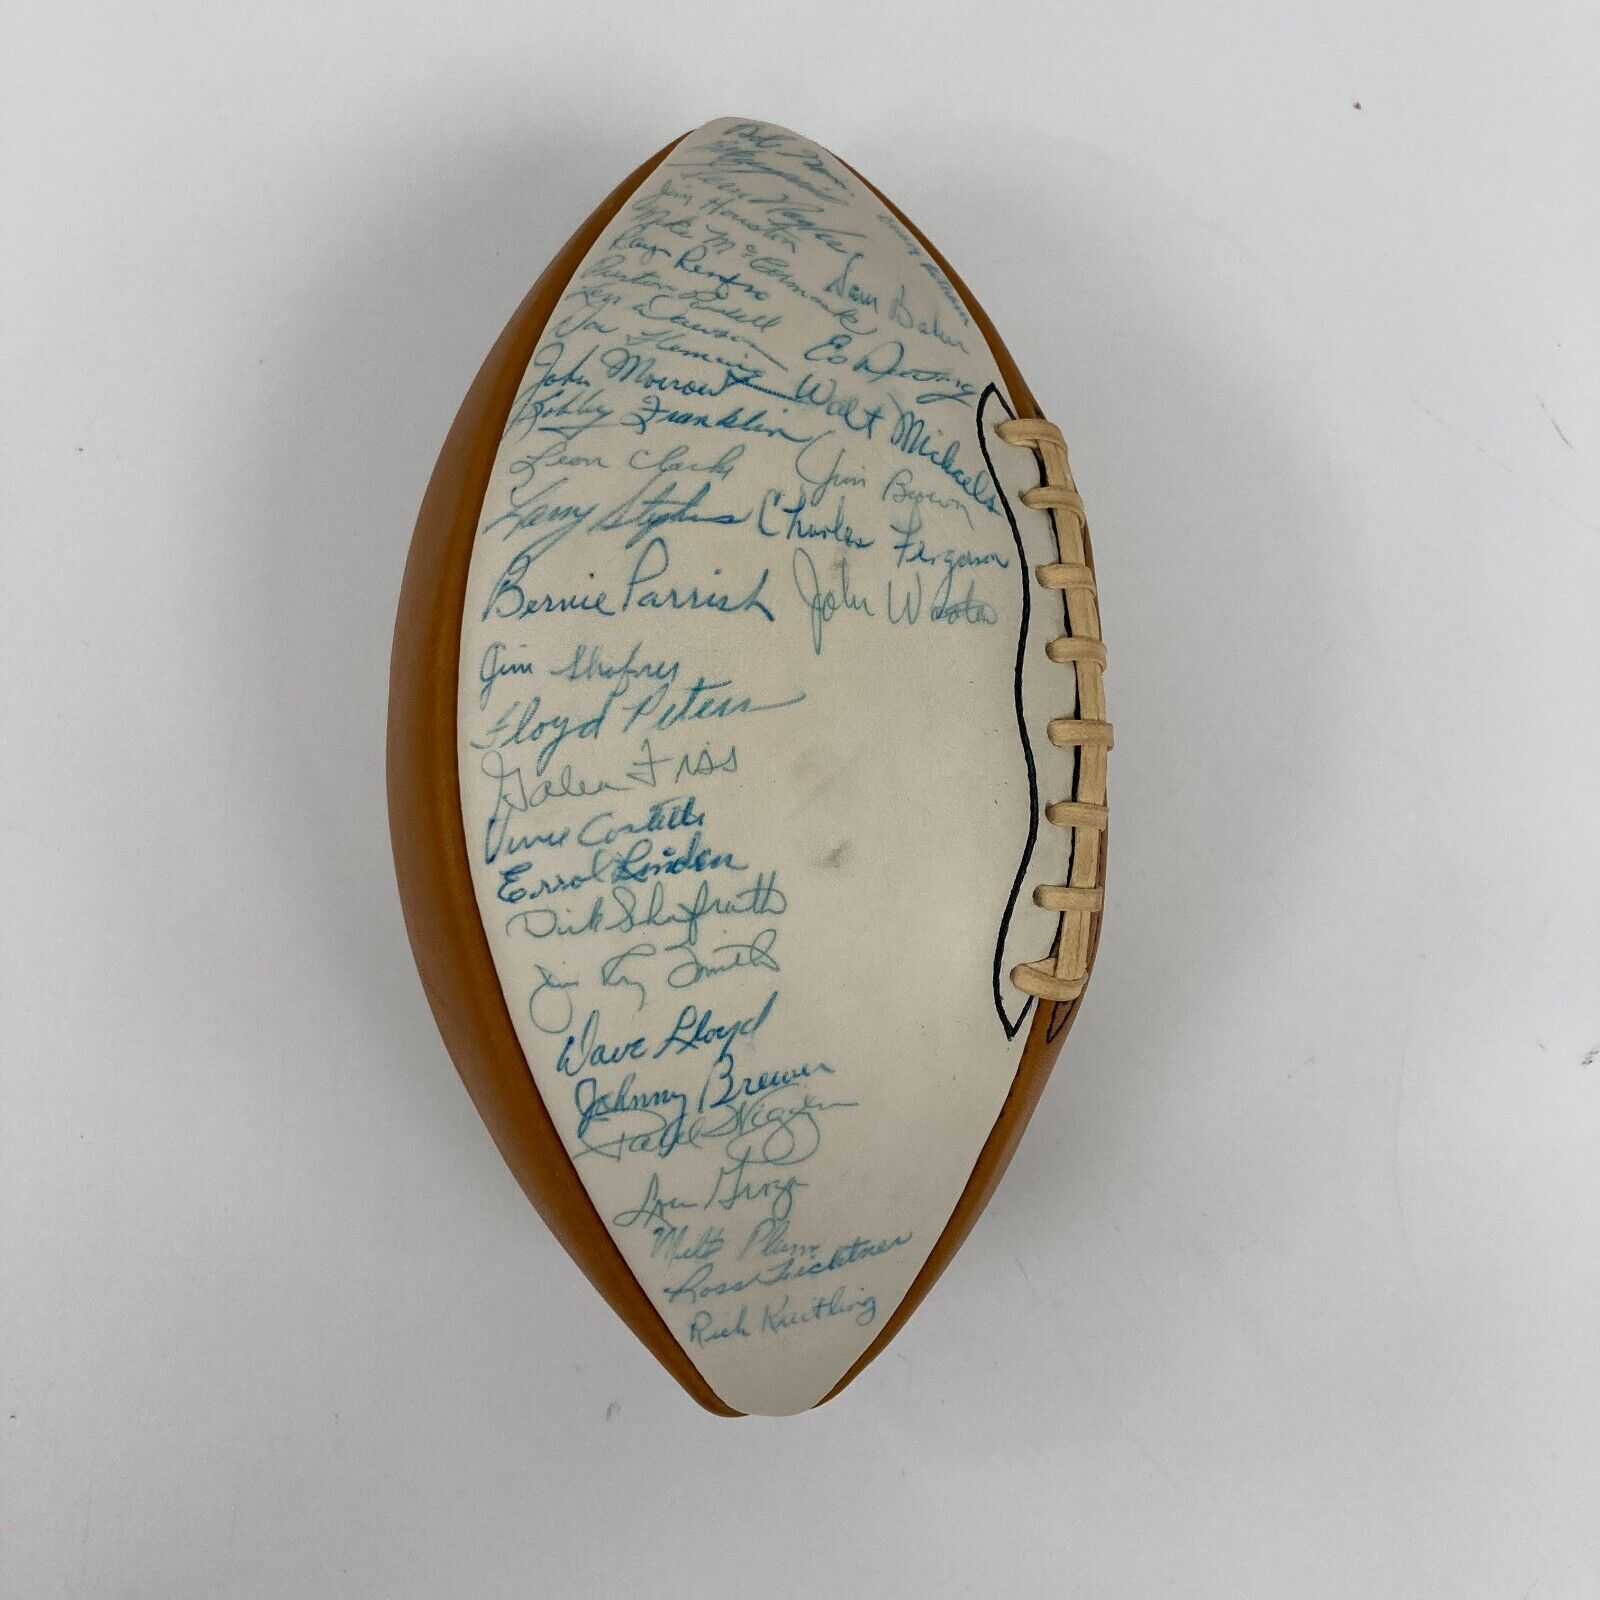 Jim Houston
Mike McCormack
Sam Baker
Ray Renfro
Preston Powell
Len Dawson
Don Fleming
John Morrow
Walt Michaels
Bobby Franklin
Leon Clarke
Jim Brown
Larry Stephens
Charles Ferguson
Bernie Parrish
John Wooten
Jim Shofner
Floyd Peters
Galen Fiss
Vince Costello
Errol Linden
Dick Schafrath
Jim Ray Smith
Dave Lloyd
Johnny Brewer
Paul Wiggin
Lou Groza
Milt Plum
Ross Fichtner
Rich Kreitling